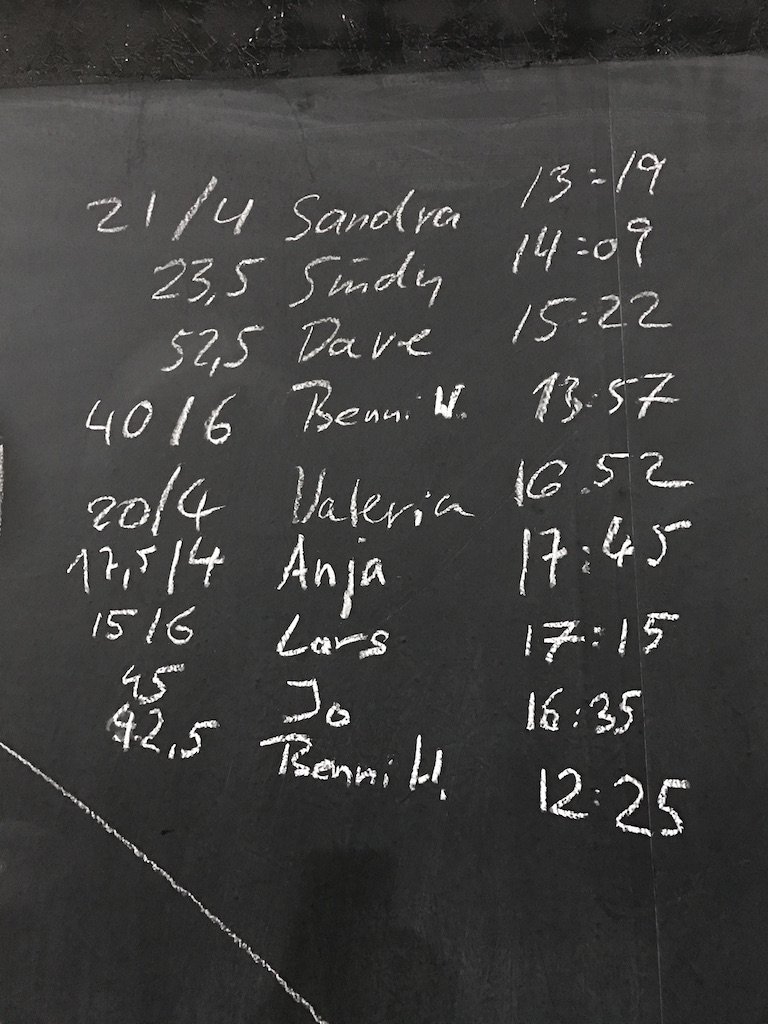 21/4 Sandra 13:19
23,5 Sindy 14:09
52,5 Dave 15:22
40/6 Benni W. 13:57
20/4 Valeria 16:52
17,5/4 Anja 17:45
15/6 Lars 17:15
45 Jo 16:35
42,5 Benni H. 12:25